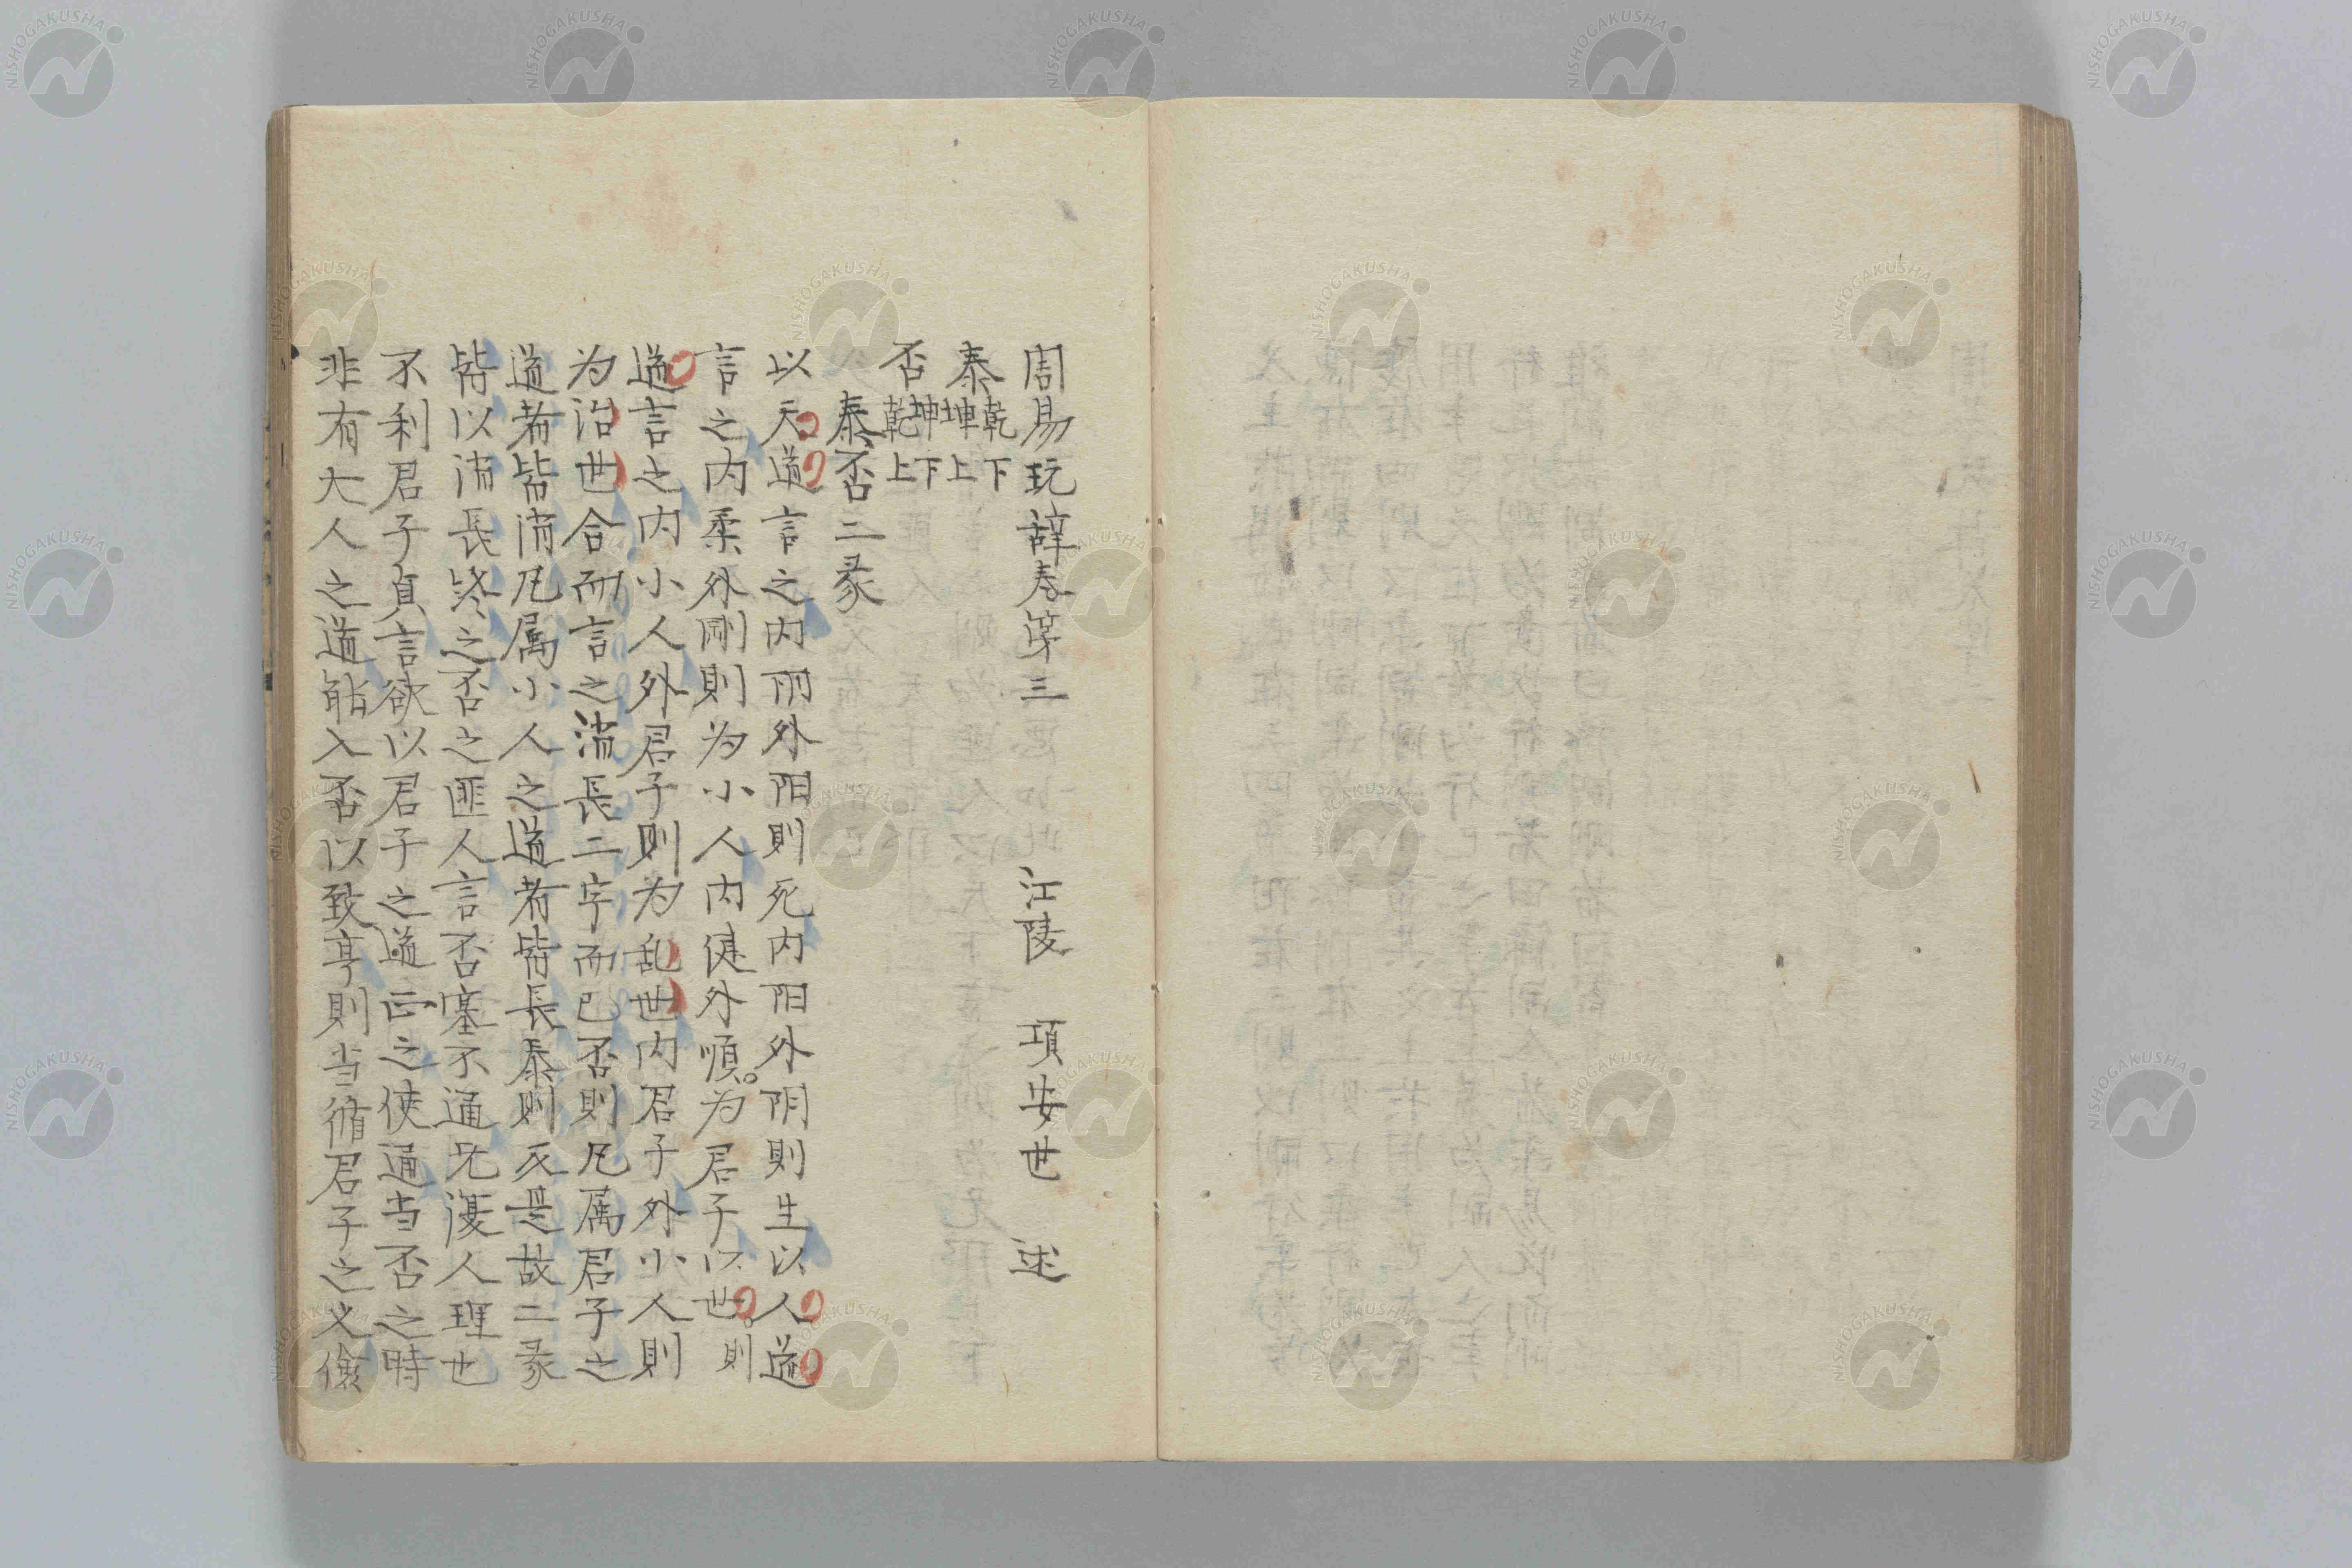 周易玩辞卷第三　江陵　項安世　述
泰　乾下坤上
否　坤下乾上
泰否二彖
以天道言之内阴外阳則死内阳外阴則生以人道
言之内柔外刚則为小人内健外順为君子以世則
道言之内小人外君子则为乱世内君子外小人則
为治世合而言之消長二字而已否則凡属君子之
道者皆消凡属小人之道者皆長泰则反是故二彖
皆以消長終之否之匪人言否塞不通无復人理也
不利君子貞言欲以君子之道正之使通当否之時
非有大人之道能入否以致亨則当循君子之义儉
NISHOGAKUSHA